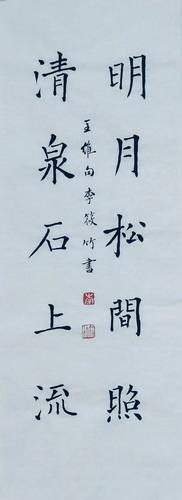 明月松間照
清泉石上流
王維句李筱竹書